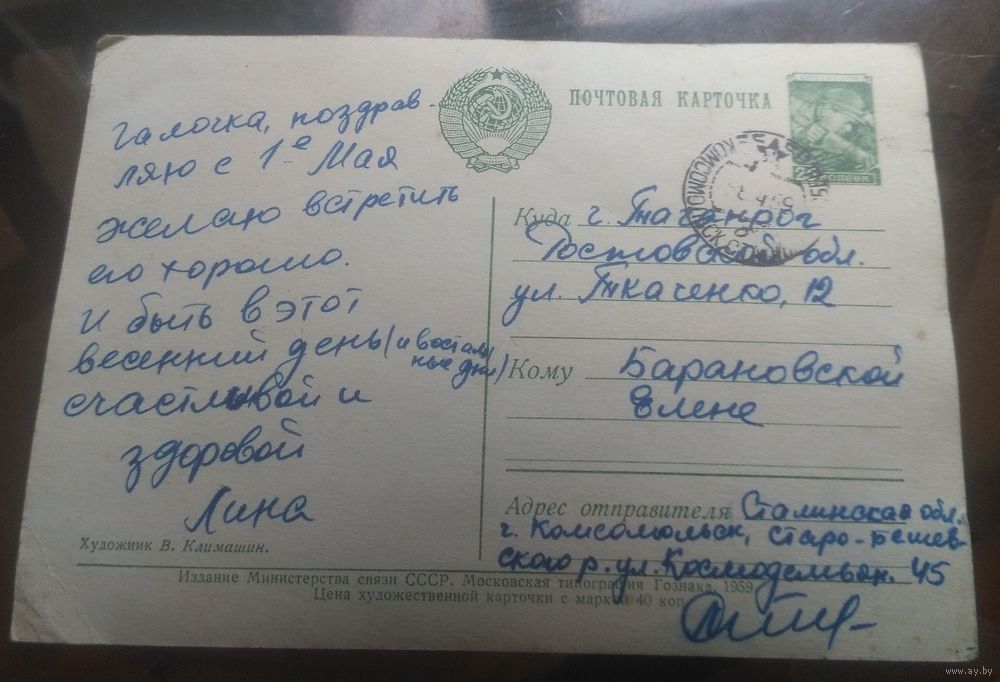 ПОЧТОВАЯ КАРТОЧКА
Галочка, поздрав-
ляю с 1е Мая
желаю встретить
его хорошо.
И быть в этот
весенний день (и в осталь
ные дни)
счастливой и
здоровой
Лина
Художник В. Климашин.
Куда г. Таганрог
Ростовской обл.
ул. Ткаченко, 12
Кому Барановской
Елене
Адрес отправителя Сталинская обл.
г. Комсомольск, Старо-Бешев-
ского р. ул. Космодемьян. 45
Издание Министерства связи СССР. Московская типография Гознака, 1959
Цена художественной карточки с маркой 40 коп
www.ay.by